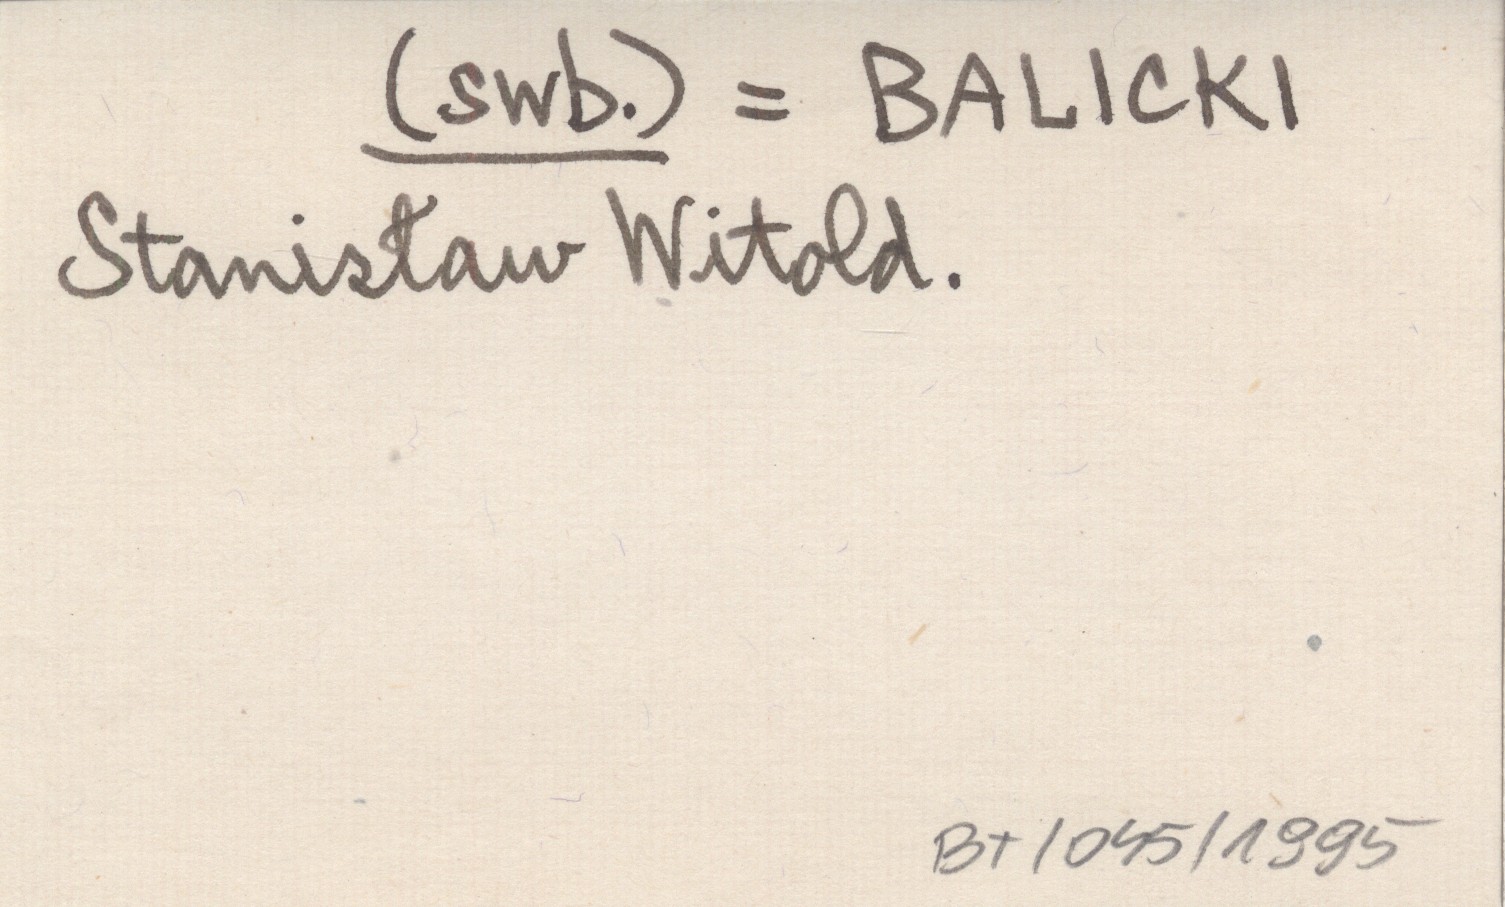 (swb.) = BALICKI
Stanisław Witold.
Bt/045/1995